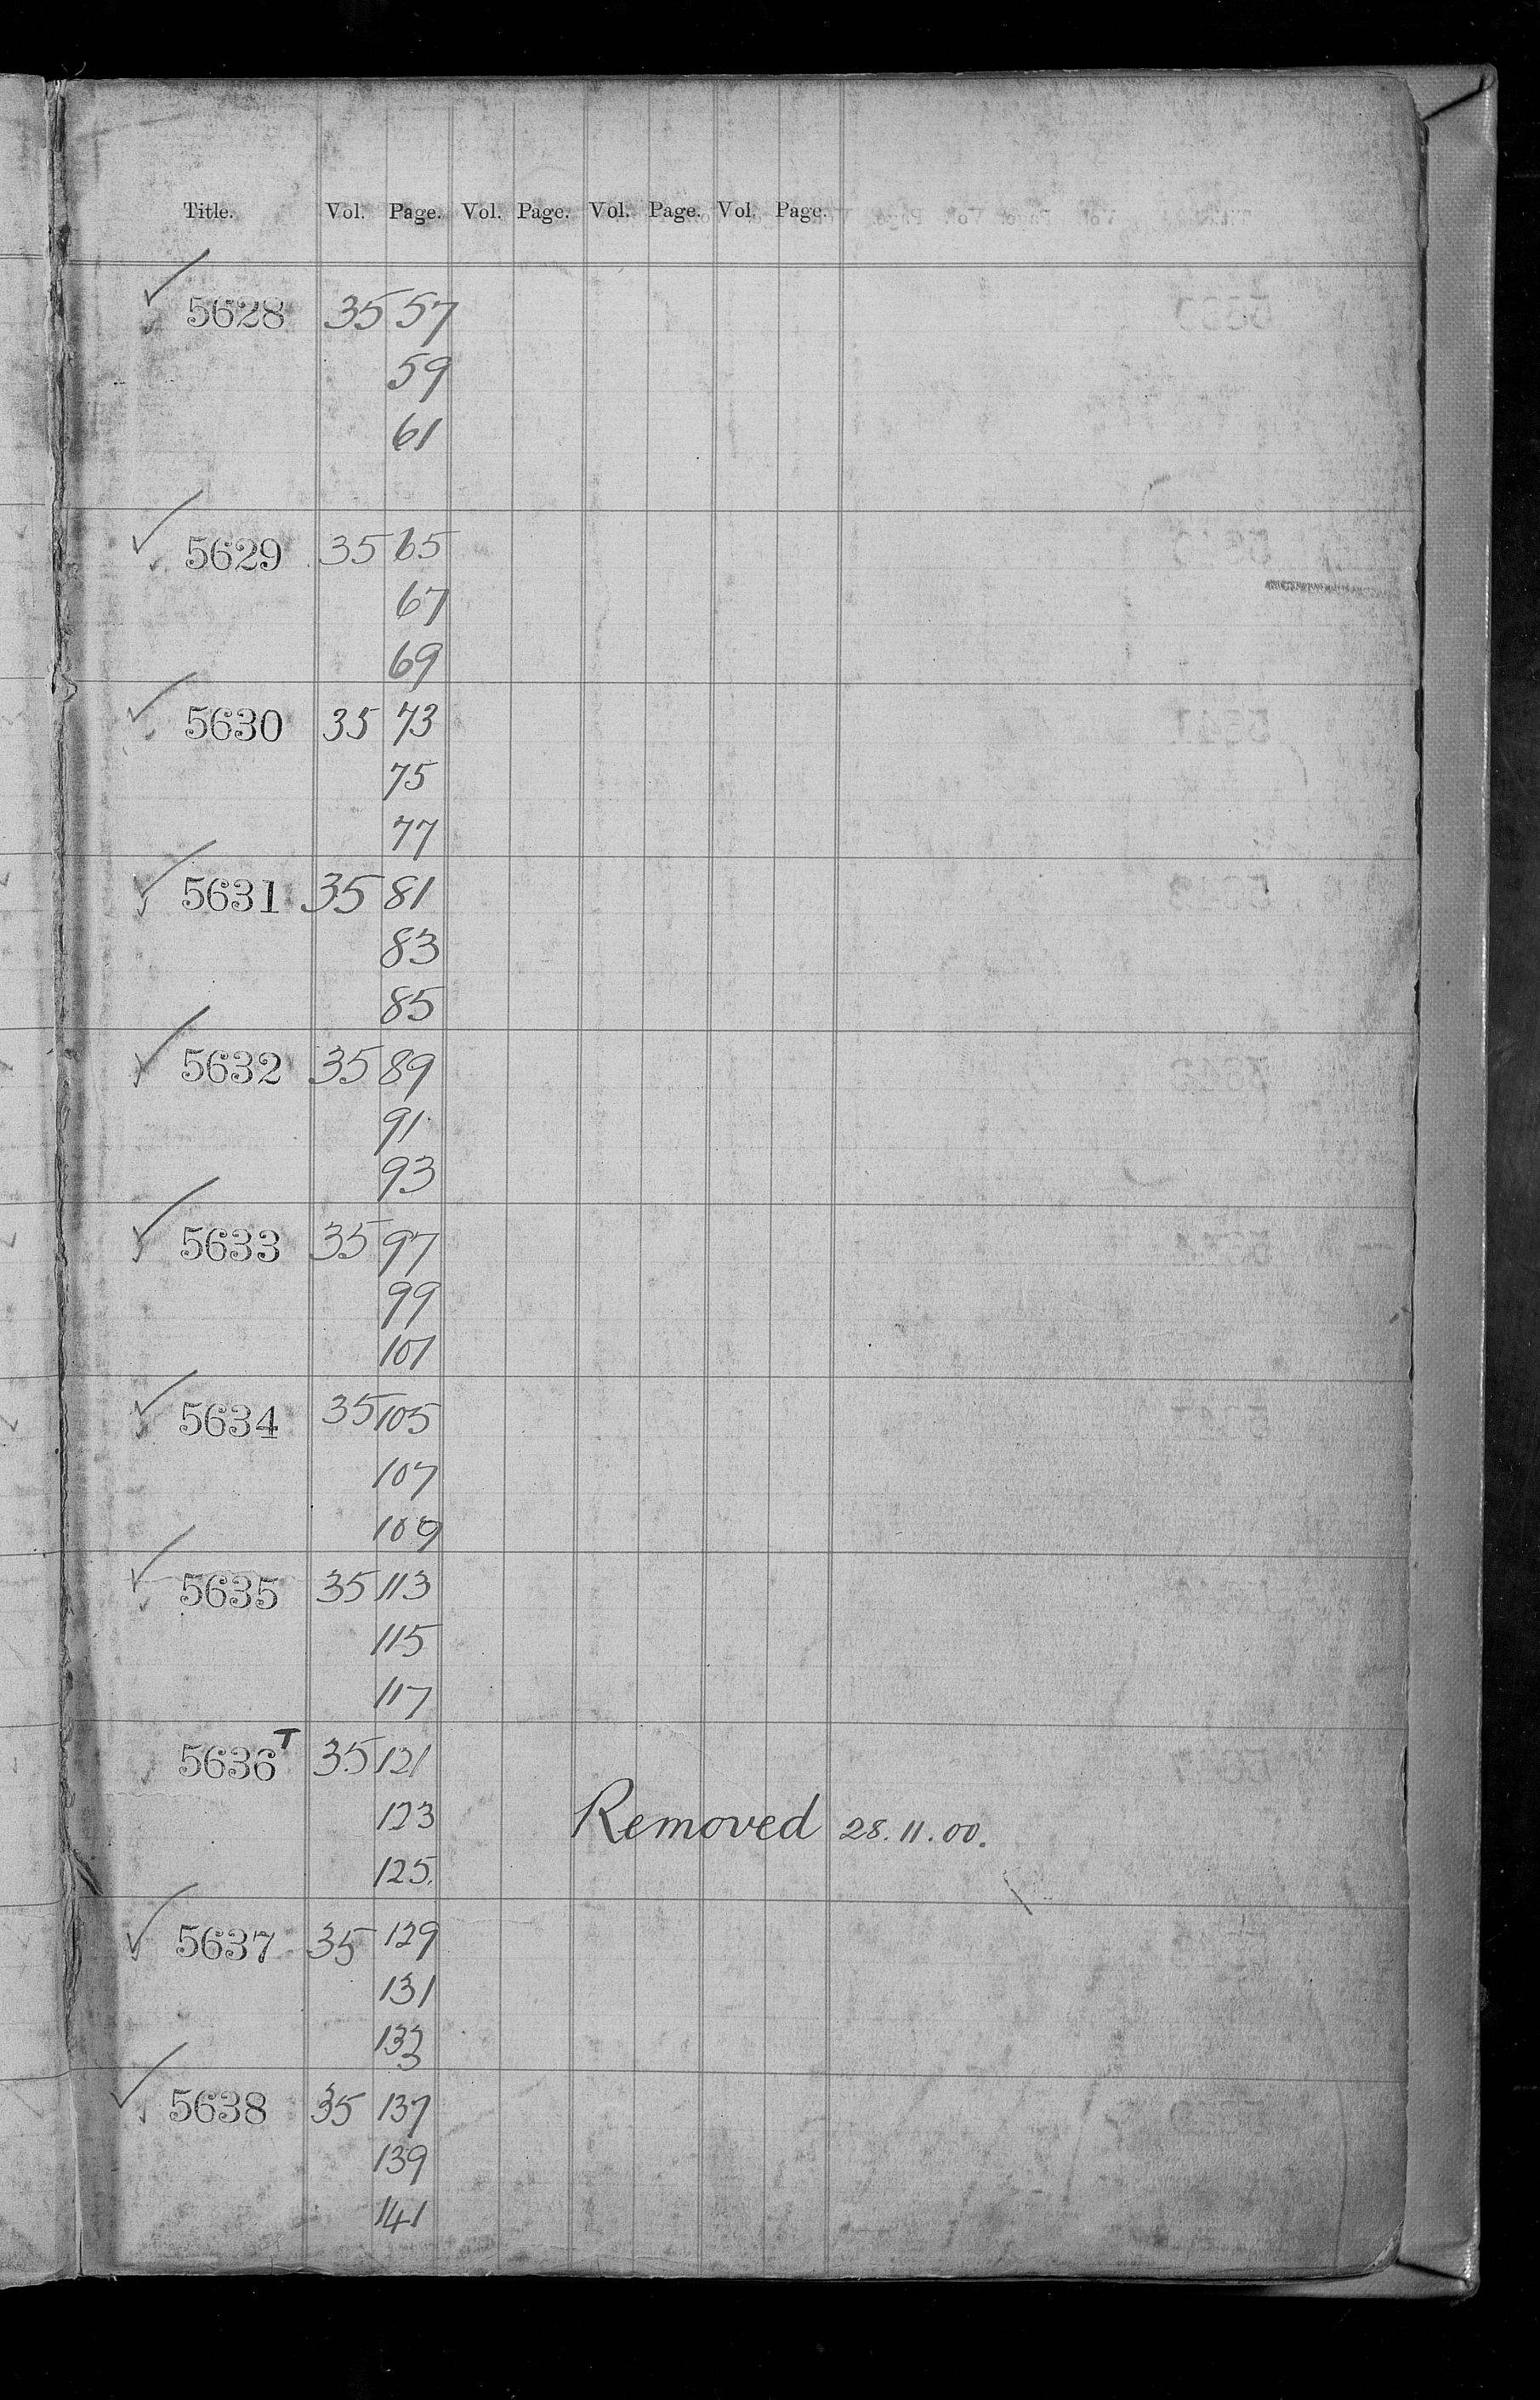 Title. Vol. Page. Vol. Page. Vol. Page. Vol. Page.
✓ 5628 35 57
59
61
✓ 5629 35 65
67
69
✓ 5630 35 73
75
77
✓ 5631 35 81
83
85
✓ 5632 35 89
91
93
✓ 5633 35 97
99
101
✓ 5634 35 105
107
109
✓ 5635 35 113
115
117
5636 T 35 121
123 Removed 28.11.00.
125.
✓ 5637 35 129
131
133
✓ 5638 35 137
139
141